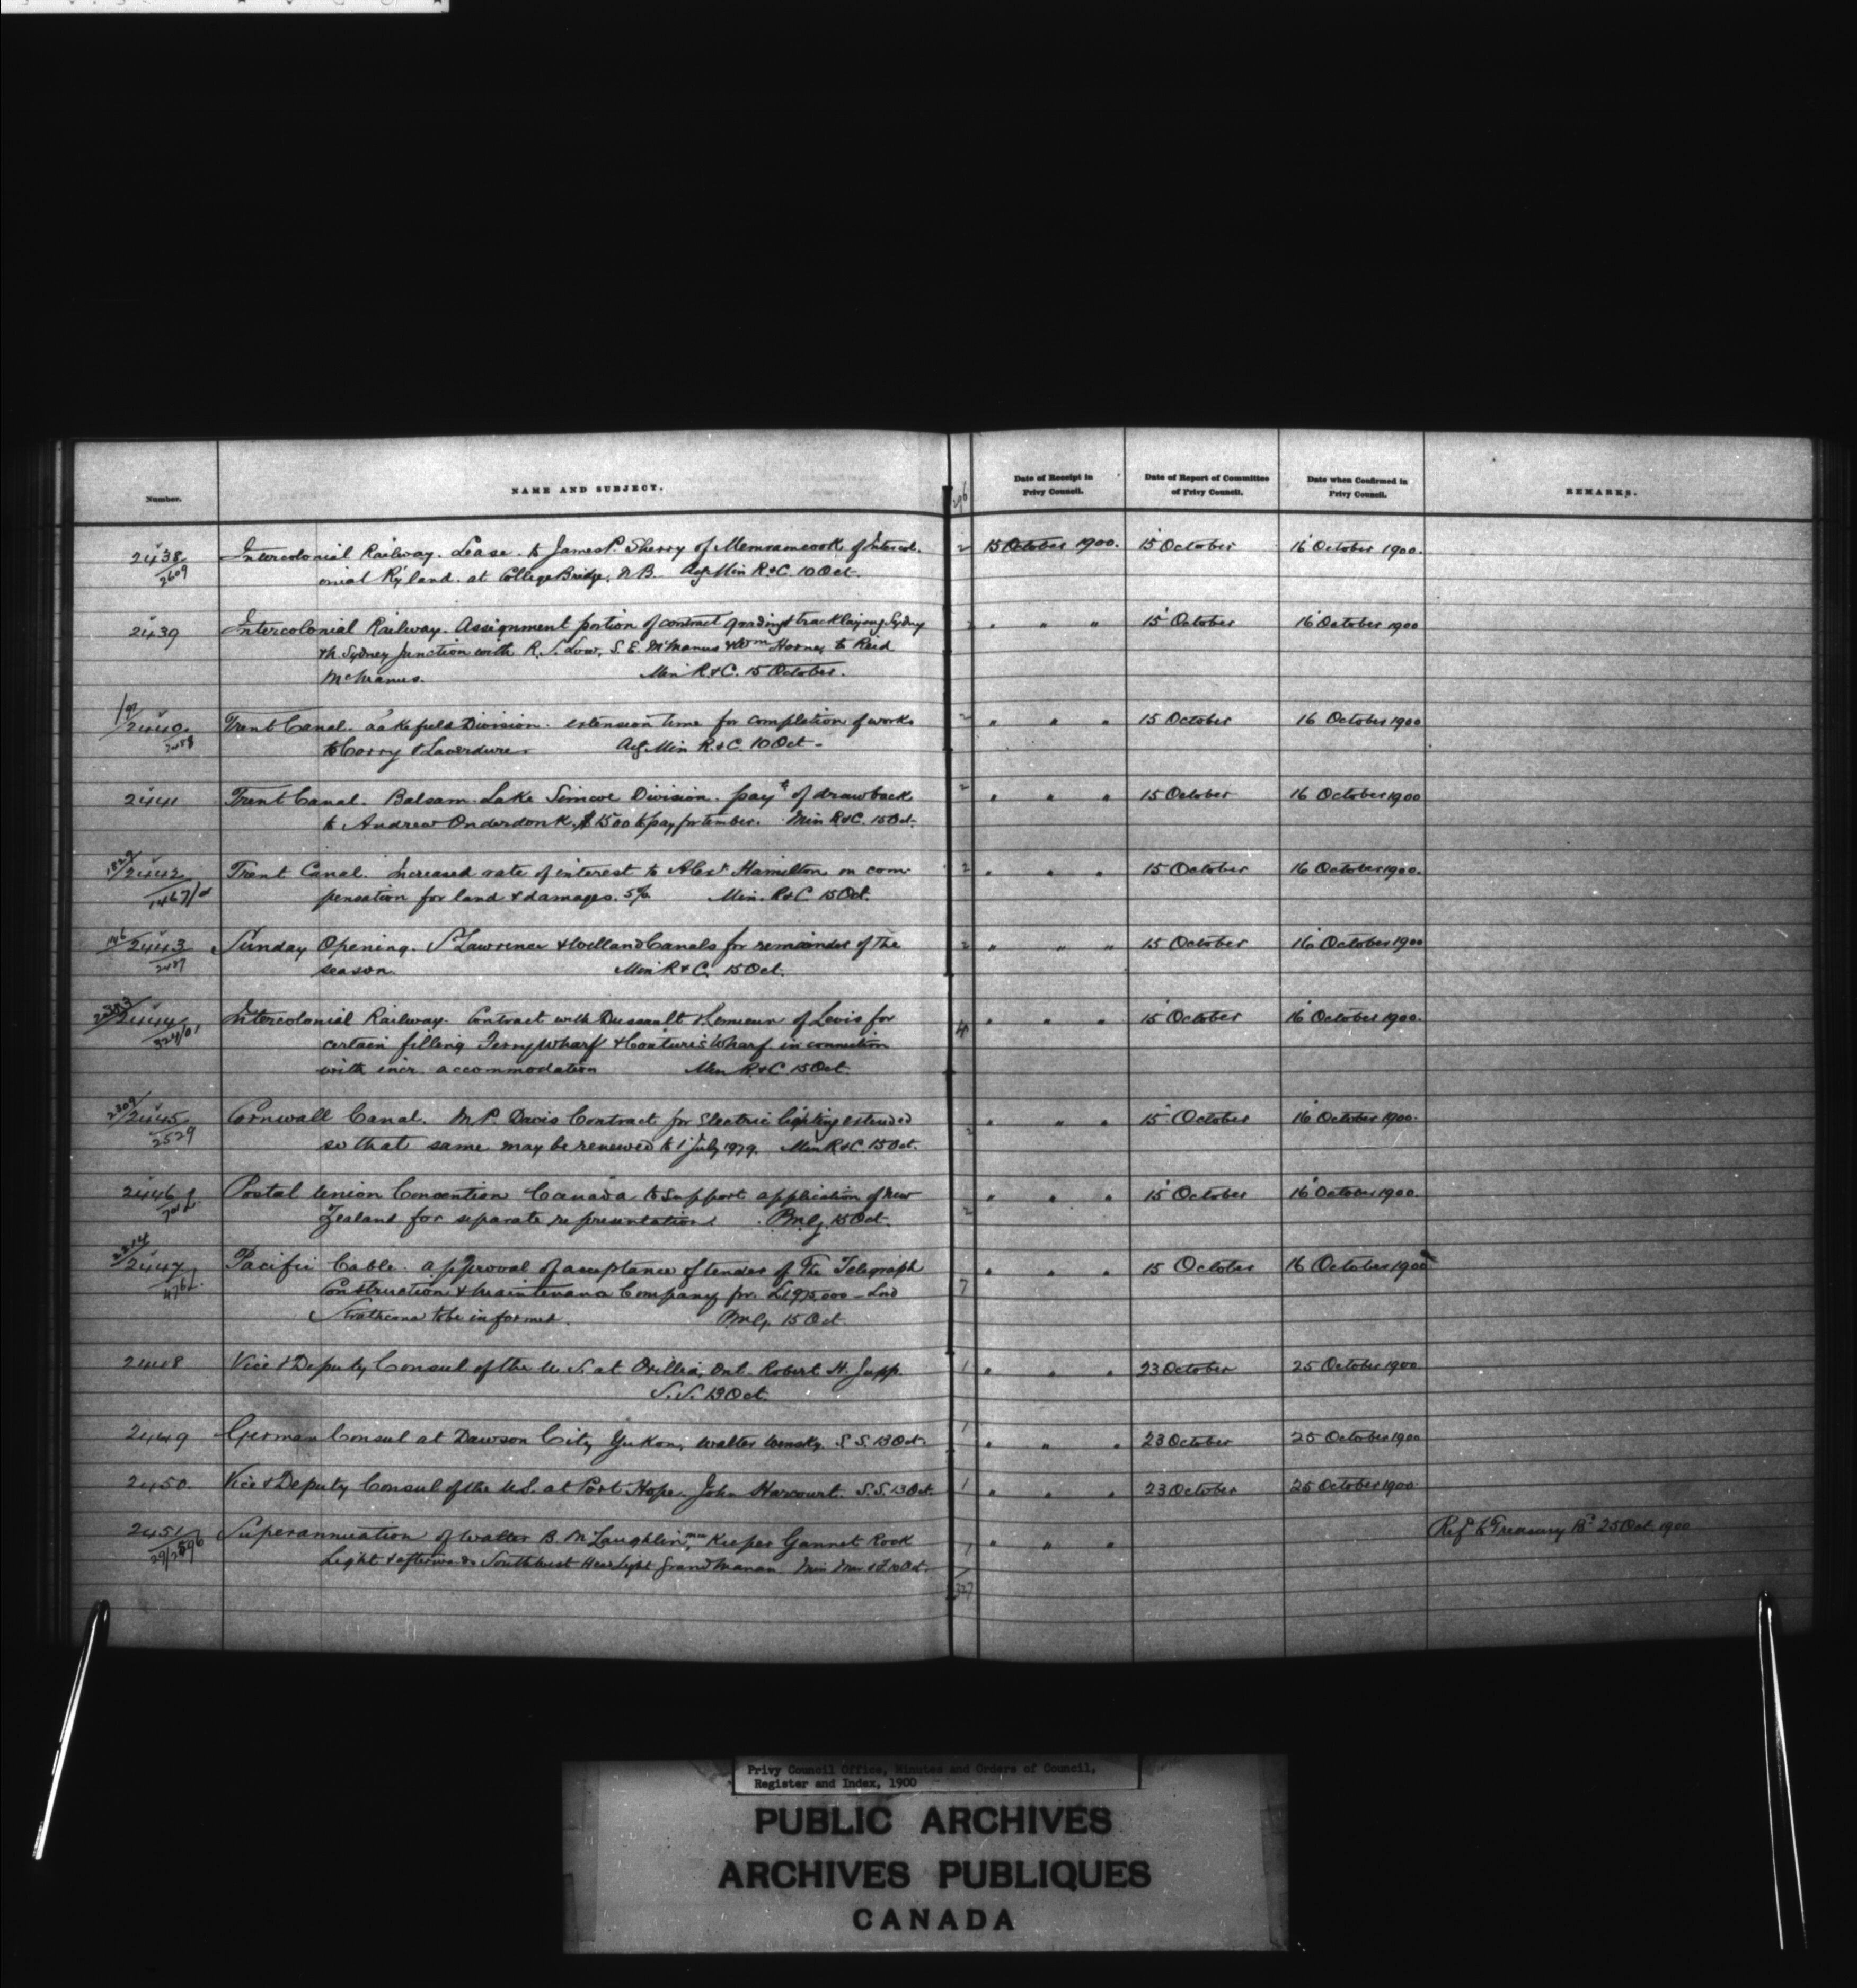 Number.
NAME AND SUBJECT.
Date of Receipt in
Privy Council.
Date of Report of Committee
of Privy Council.
Date when Confirmed in
Privy Council.
REMARKS.
296
2438 Intercolonial Railway. Lease to James P. Sherry of Memramcook of Intercol- 2 15 October 1900. 15 October 16 October 1900.
2609 onial Ry land at College Bridge, N.B. Actg Min R&C. 10 Oct.
2439 Intercolonial Railway. Assignment portion of contract grading & tracklaying Sydney " " " 15 October 16 October 1900
Sydney Junction with R. S. Low, S. E. McManus & Wm Horne, to Reid
McManus. Min R&C. 15 October.
2440 Trent Canal. Lakefield Division. extension time for completion of works 2 " " " 15 October 16 October 1900
to Corry & Laverdure Actg Min R&C. 10 Oct.
2441 Trent Canal. Balsam Lake Simcoe Division. payt of drawback 2 " " " 15 October 16 October 1900
to Andrew Onderdonk, $1500 to pay for timber. Min R&C. 15 Oct.
2442 Trent Canal. Increased rate of interest to Alexr Hamilton on com- 2 " " " 15 October 16 October 1900.
pensation for land & damages. 5% Min. R&C 15 Oct.
146/2443 Sunday Opening. St Lawrence & Welland Canals for remainder of the 2 " " " 15 October 16 October 1900
season Min R&C. 15 Oct.
2444 Intercolonial Railway. Contract with Dussault & Lemieux of Levis for 4 " " " 15 October 16 October 1900.
324/01 certain filling Ferry Wharf & Couture's Wharf in connection
with incr. accommodation Min R&C 15 Oct.
2445 Cornwall Canal. M.P. Davis Contract for Electric lighting extended " " " 15 October 16 October 1900.
2529 so that same may be renewed to 1 July 1979. Min R&C. 15 Oct. 2
2446 Postal Union Convention Canada to support application of New " " " 15 October 16 October 1900.
Zealand for separate representation. P.M.G. 15 Oct. 2
2447 Pacific Cable. approval of acceptance of tender of The Telegraph " " " 15 October 16 October 1900
Construction & Maintenance Company for £1975,000 - Lord 7
Strathcona to be informed. P.M.G. 15 Oct.
2448 Vice & Deputy Consul of the U.S. at Orillia, Ont. Robert H. Jupp. 1 " " " 23 October 25 October 1900
S.S. 13 Oct.
2449 German Consul at Dawson City Yukon, Walter S.S. 13 Oct. 1 " " " 23 October 25 October 1900
2450. Vice & Deputy Consul of the U.S. at Port Hope. John Harcourt. S.S. 13 Oct. 1 " " " 23 October 25 October 1900.
2451 Superannuation of Walter B. McLaughlin, Keeper Gannet Rock 1 " " " Refd to Treasury Bd 25 Oct 1900
Light & afterwards Southwest Head Light Grand Manan Min Mar & F 10 Oct.
327
Privy Council Office, Minutes and Orders of Council,
Register and Index, 1900
PUBLIC ARCHIVES
ARCHIVES PUBLIQUES
CANADA